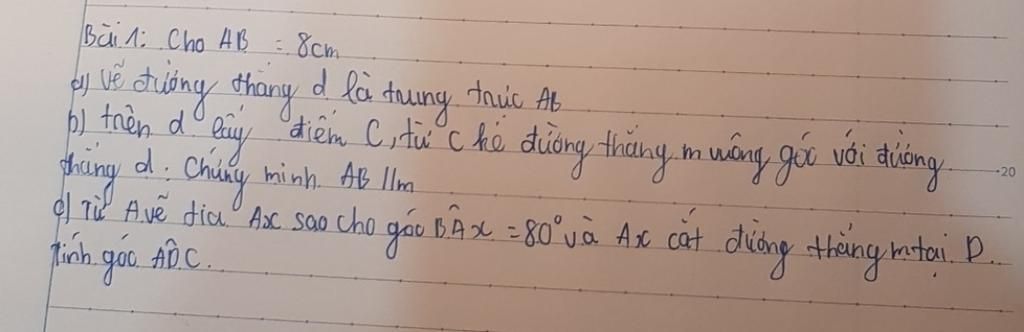 Bài 1: Cho AB = 8cm
a) Vẽ đường thẳng d là trung trực AB
b) trên d lấy điểm C, từ C kẻ đường thẳng m vuông góc với đường
thẳng d. Chứng minh AB // m
c) Từ A vẽ tia Ax sao cho góc BÂx = 80° và Ax cắt đường thẳng m tại D.
Tính góc AD̂C.
20